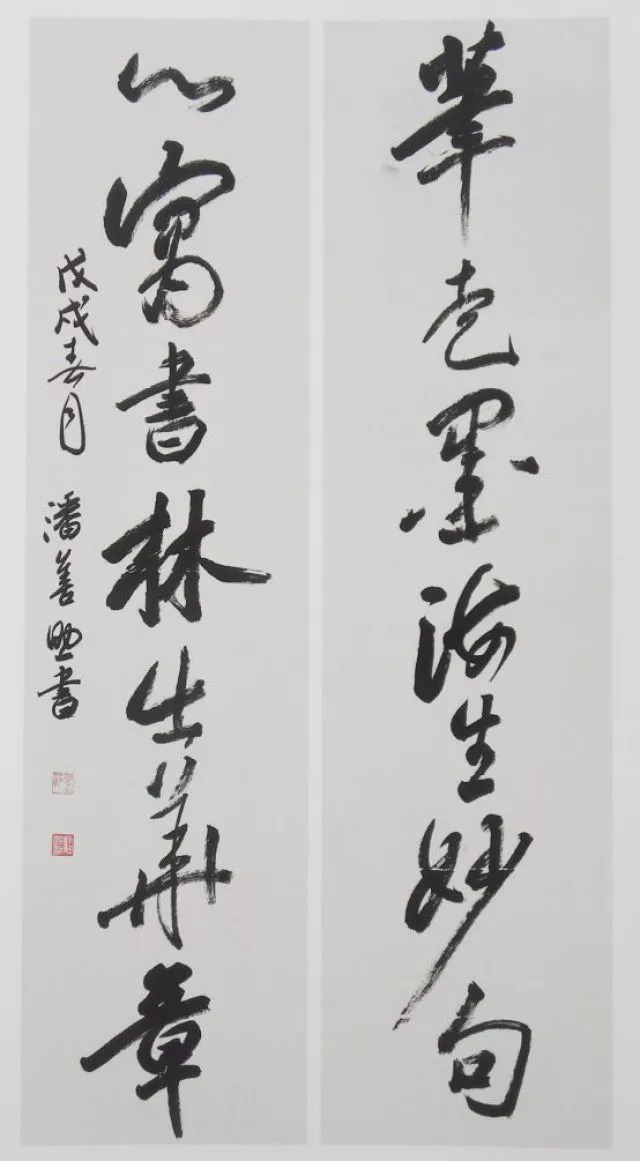 筆走墨海生妙句
心寓書林出華章
戊戌春月 潘善助書